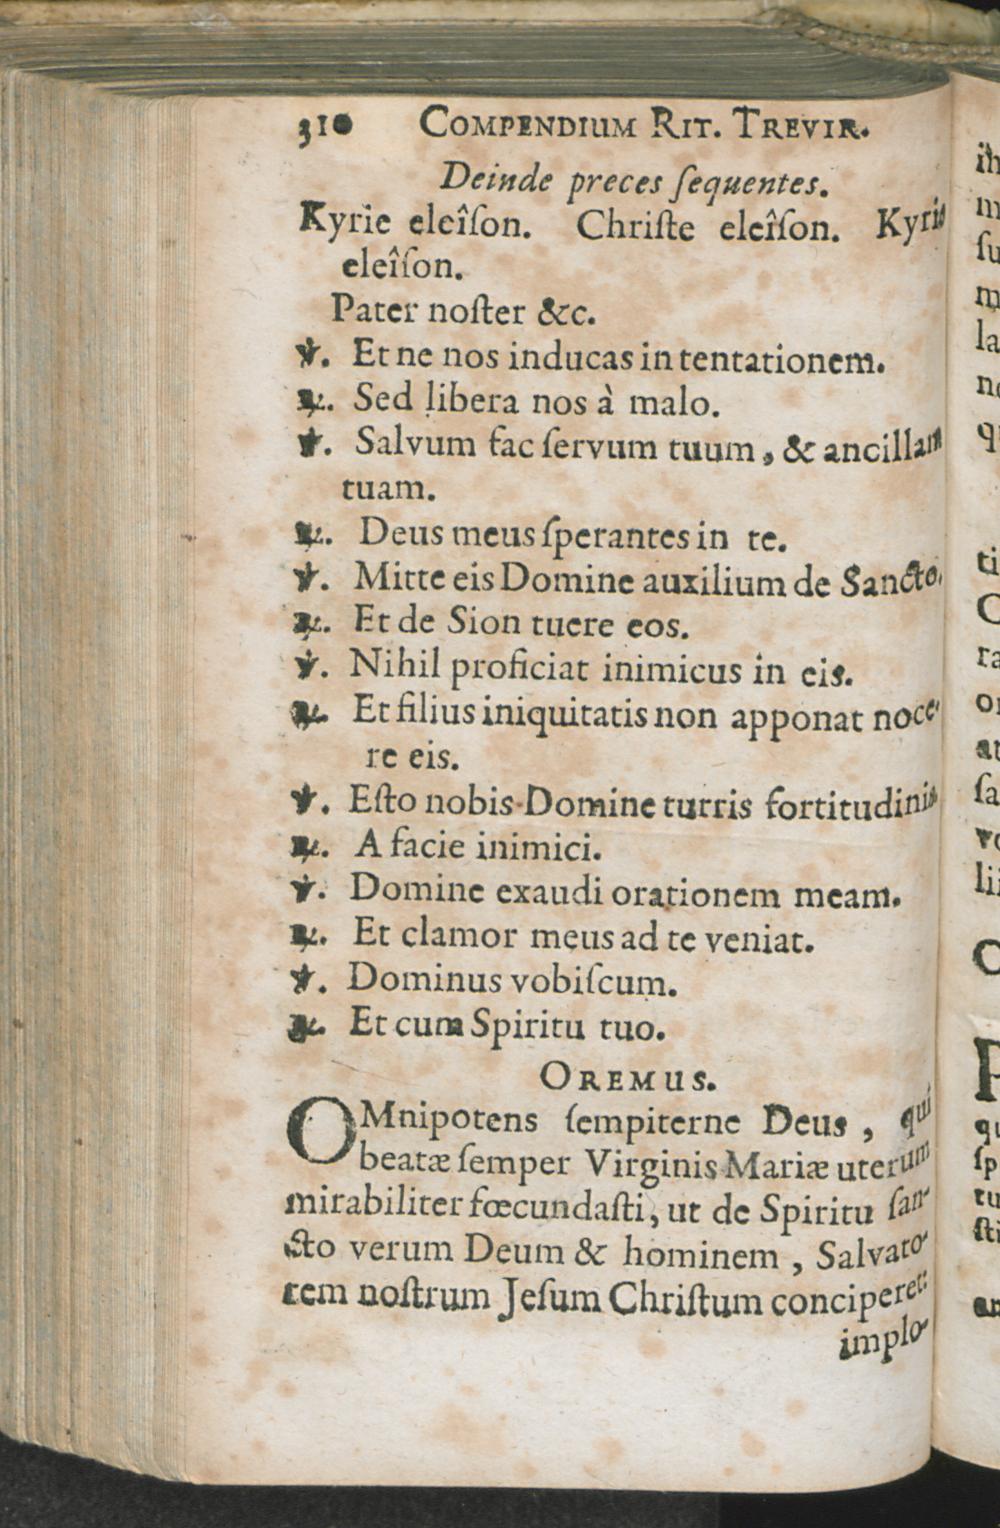 310 COMPENDIUM RIT. TREVIR.
Deinde preces ſequentes.
Kyrie eleîſon. Chriſte eleîſon. Kyrie
eleîſon.
Pater noſter &c.
℣. Et ne nos inducas in tentationem.
℟. Sed libera nos à malo.
℣. Salvum fac ſervum tuum, & ancillam
tuam.
℟. Deus meus ſperantes in te.
℣. Mitte eis Domine auxilium de Sancto.
℟. Et de Sion tuere eos.
℣. Nihil proficiat inimicus in eis.
℟. Et filius iniquitatis non apponat noce-
re eis.
℣. Eſto nobis Domine turris fortitudinis.
℟. A facie inimici.
℣. Domine exaudi orationem meam.
℟. Et clamor meus ad te veniat.
℣. Dominus vobiſcum.
℟. Et cum Spiritu tuo.
OREMUS.
OMnipotens ſempiterne Deus, qui
beatæ ſemper Virginis Mariæ uterum
mirabiliter fœcundaſti, ut de Spiritu ſan-
cto verum Deum & hominem, Salvato-
rem noſtrum Jeſum Chriſtum conciperet:
implo-